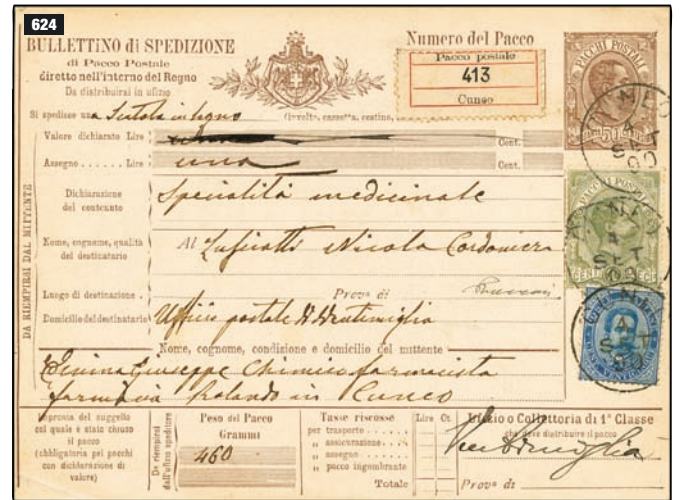 624
BULLETTINO di SPEDIZIONE
di Pacco Postale
diretto nell'interno del Regno
Da distribuirsi in ufizio
Numero del Pacco
Pacco postale
413
Cuneo
PACCHI POSTALI
50
Si spedisce una Scatola in legno (involto, cassetta, cestino,
Valore dichiarato Lire Cent.
Assegno ...... Lire una Cent.
Dichiarazione del contenuto
Specialità medicinale
Nome, cognome, qualità del destinatario
Al Nicola
Luogo di destinazione . Prov.ª di
Domicilio del destinatario Ufficio postale Ventimiglia
DA RIEMPIRSI DAL MITTENTE
Nome, cognome, condizione e domicilio del mittente
Giuseppe Chimico farmacista
farmacia in Cuneo
CUNEO
4
SET
90
Impronta del suggello
col quale è stato chiuso
il pacco
(obbligatoria pei pacchi
con dichiarazione di
valore)
Da riempirsi
dall'ufizio speditore
Peso del Pacco
Grammi
460
Tasse riscosse Lire Ct.
per trasporto ......
„ assicurazione ..
„ assegno ......
„ pacco ingombrante
Totale
Ufizio o Collettoria di 1ª Classe
che deve distribuire il pacco
Ventimiglia
Prov.ª di